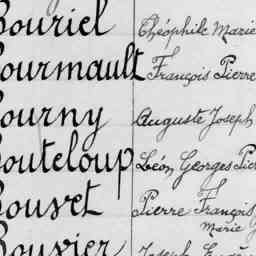 Bouriel Théophile Marie
Bourmault François Pierre
Bourny Auguste Joseph
Bouteloup Léon, Georges Pie
Bouvet Pierre François,
Marie
Bouvier Joseph